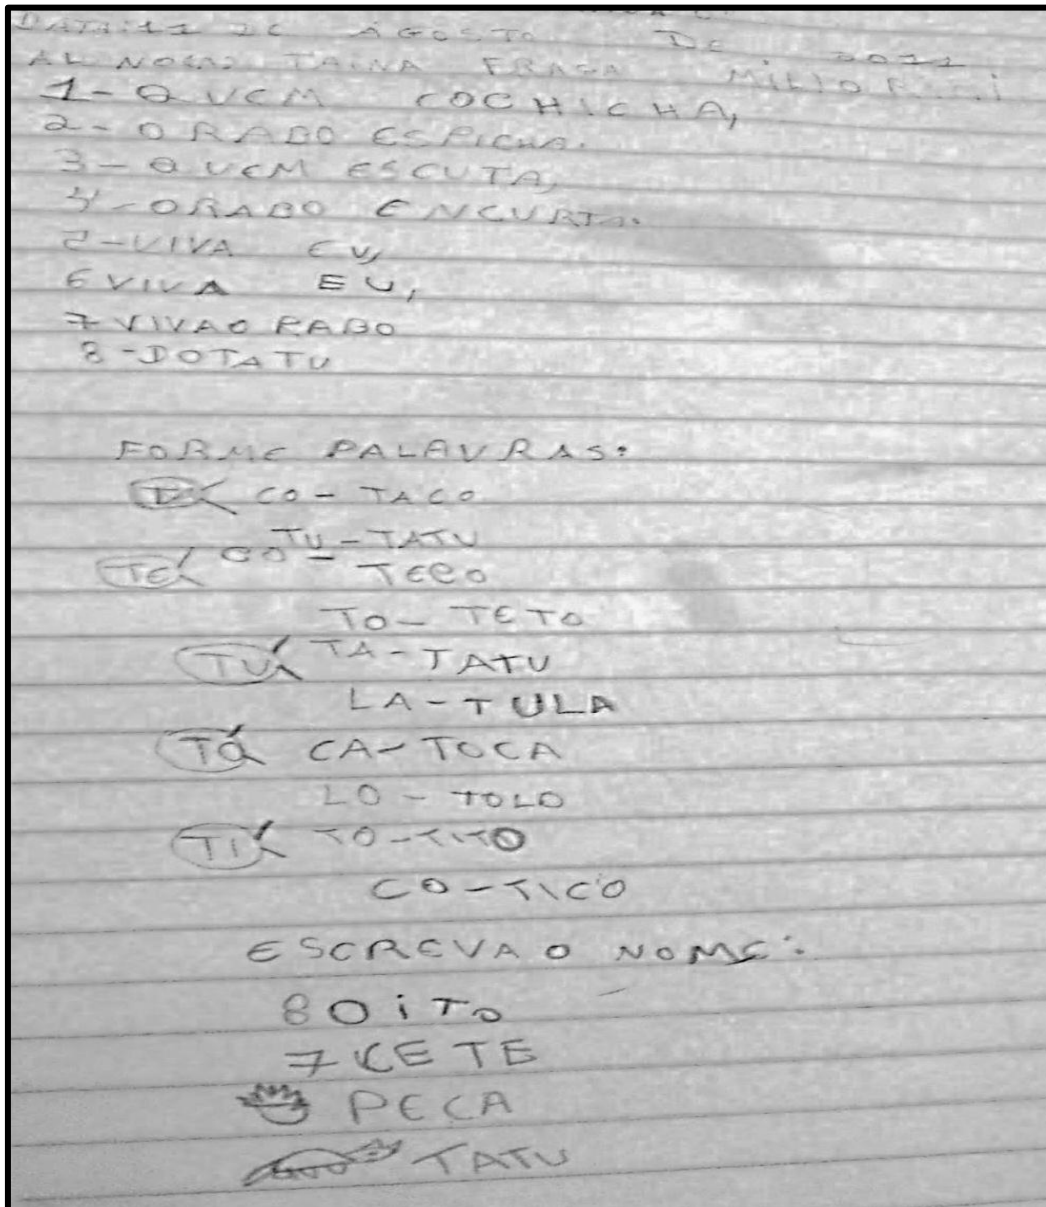 DATA:11 DE AGOSTO DE 2011
TAINA FRAGA
1-QUEM COCHICHA,
2-O RABO ESPICHA.
3-QUEM ESCUTA,
4-ORABO ENCURTA.
5-VIVA EU,
6 VIVA EU,
7 VIVAO RABO
8-DOTATU
FORME PALAVRAS:
TA CO-TACO
TU-TATU
TE CO-TECO
TO-TETO
TU TA-TATU
LA-TULA
TO CA-TOCA
LO-TOLO
TI TO-TITO
CO-TICO
ESCREVA O NOME:
8 OiTO
7 CETE
PECA
TATU